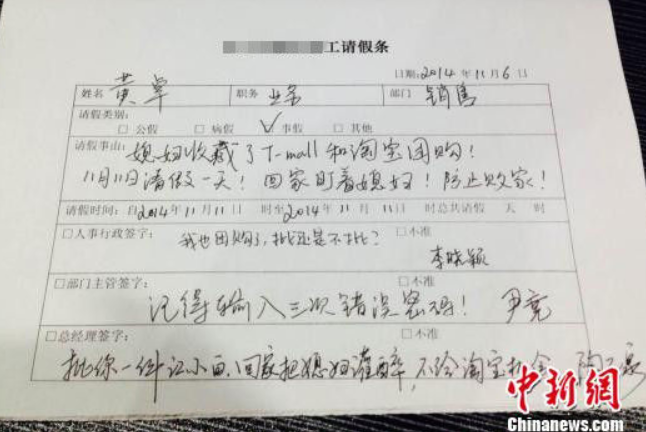 工请假条
日期:2014年11月6日
姓名 黄卓 职务 业务 部门 销售
请假类别:
□公假 □病假 ✓事假 □其他
请假事由: 媳妇收藏了T-mall和淘宝团购!
11月11日请假一天! 回家盯着媳妇! 防止败家!
请假时间: 自2014年11月11日 时至2014年11月11日 时总共请假 天 时
□人事行政签字: □不准
我也团购了,批还是不批?
李晓颖
□部门主管签字: □不准
记得输入三次错误密码! 尹亮
□总经理签字: □不准
批你一件江小白,回家把媳妇灌醉,不给淘宝机会
中新网
Chinanews.com